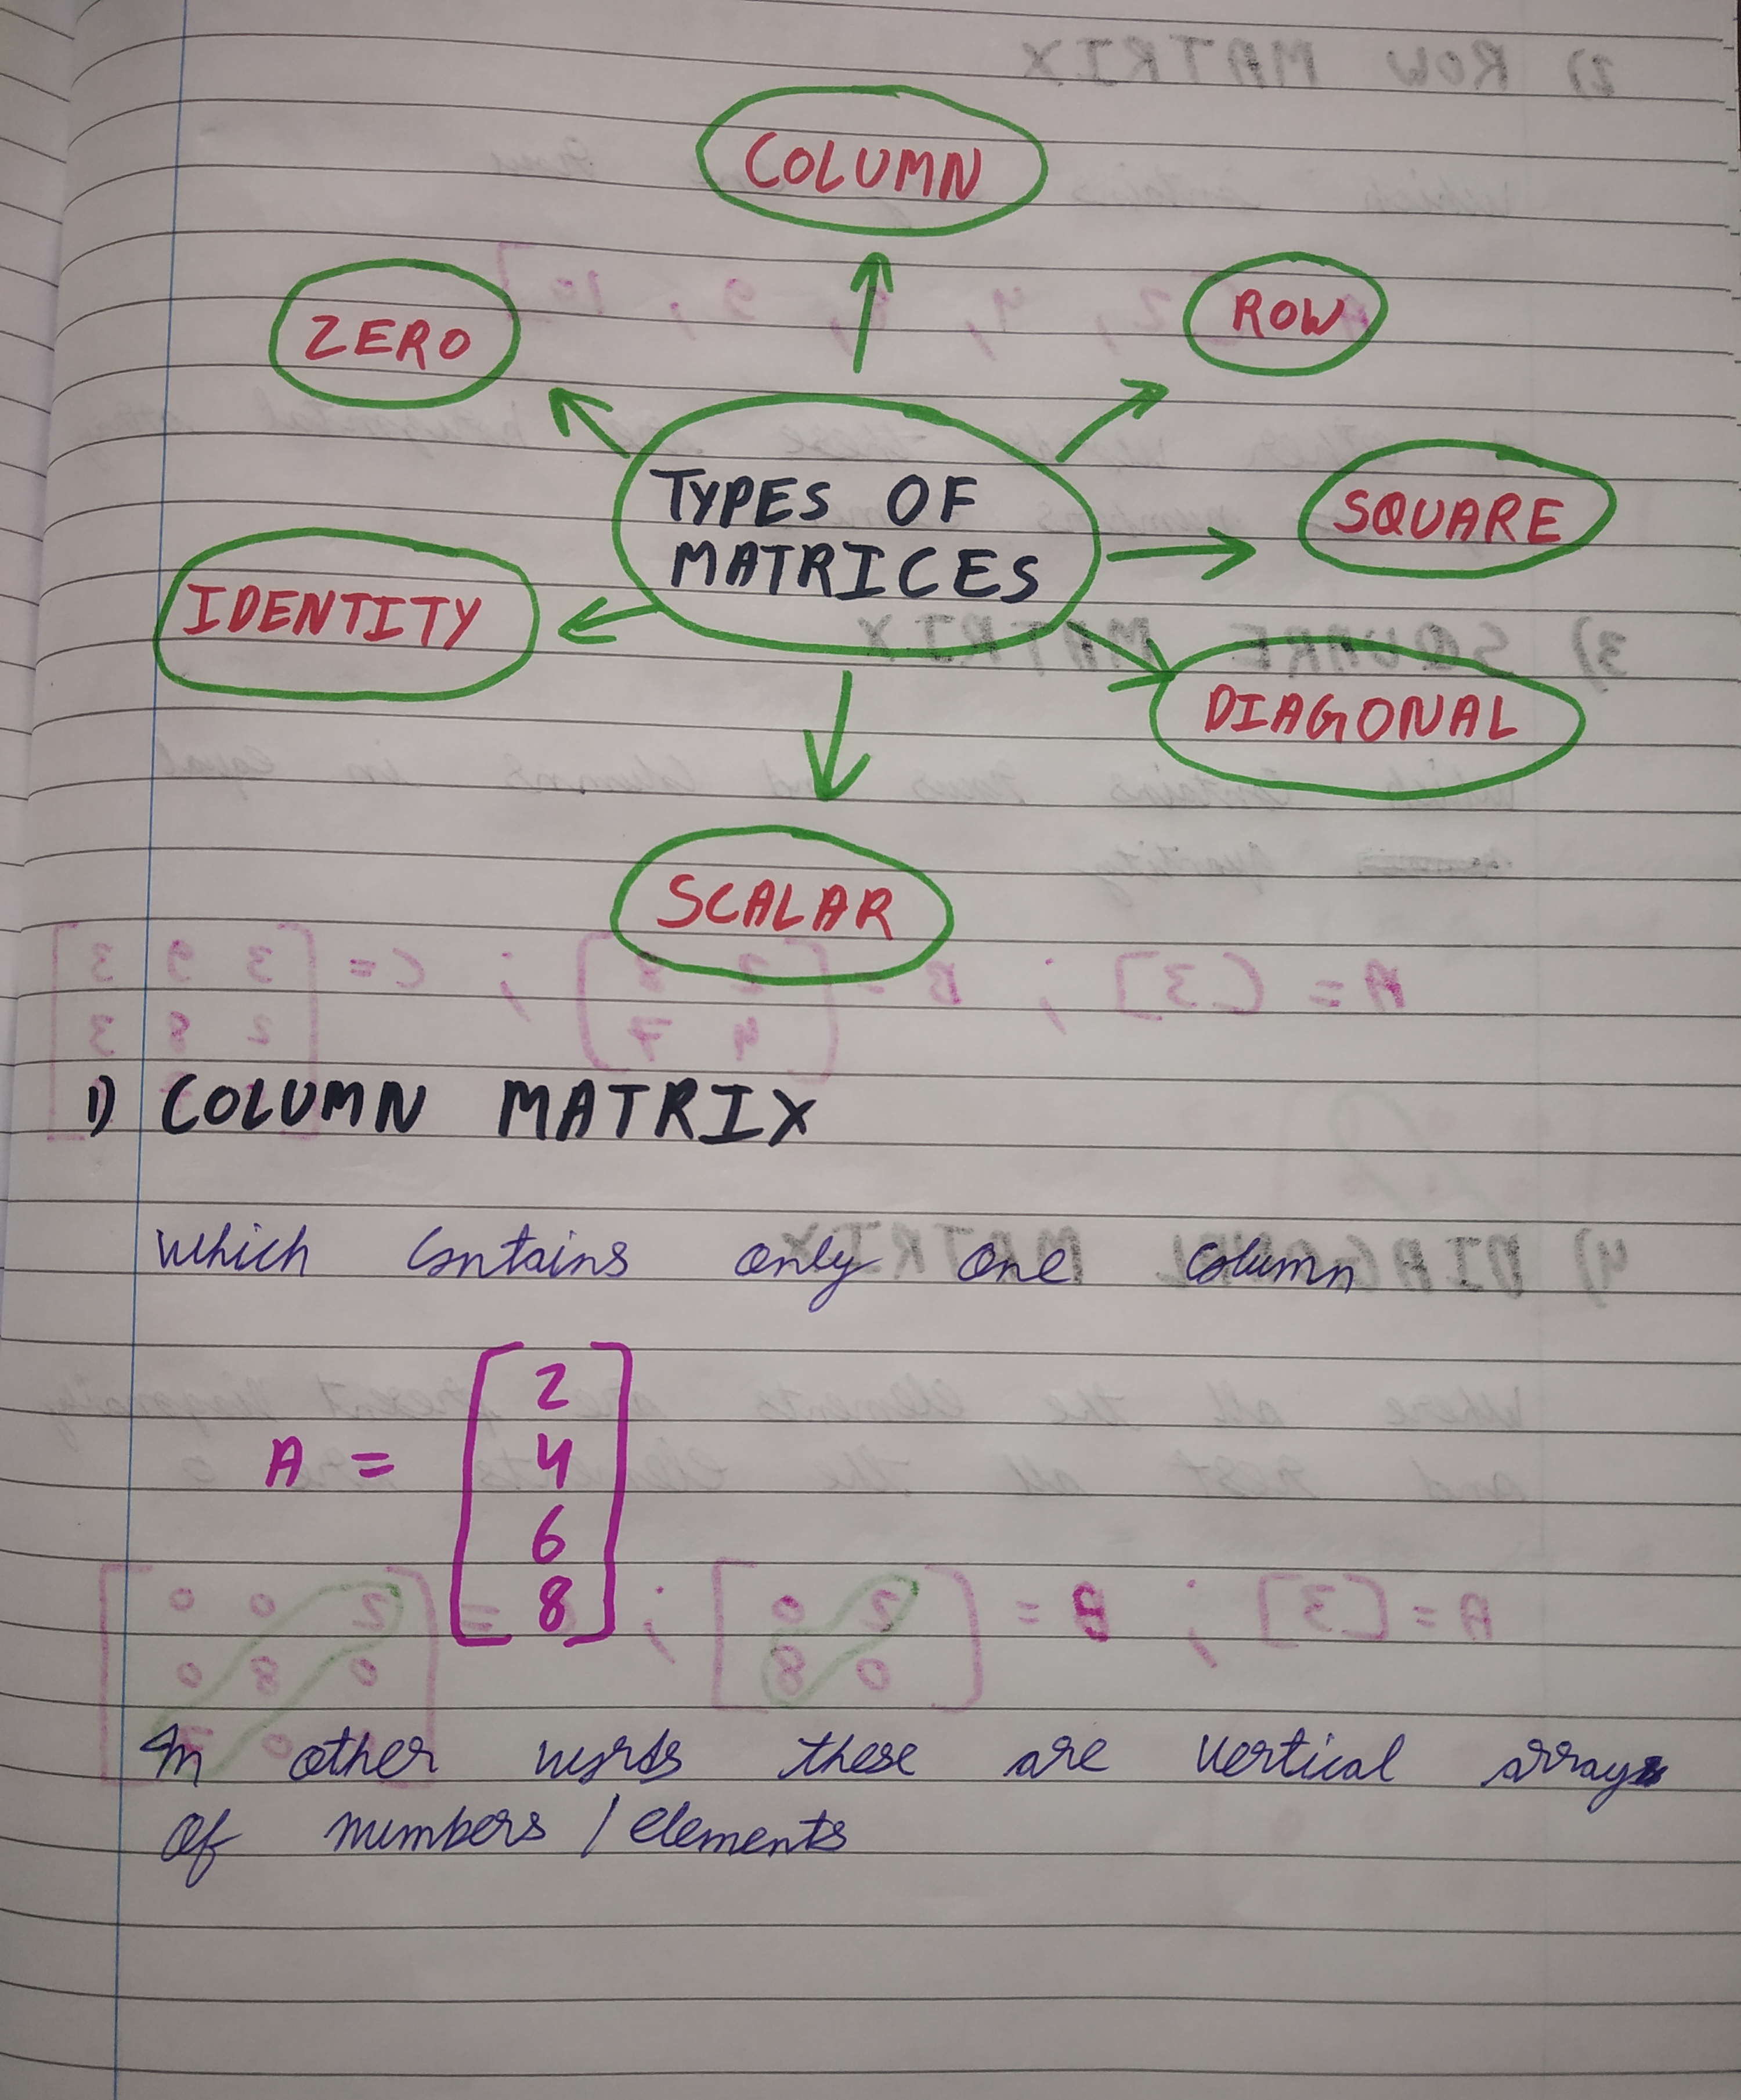 COLUMN
ZERO
ROW
TYPES OF
MATRICES
SQUARE
IDENTITY
DIAGONAL
SCALAR
1) COLUMN MATRIX
which contains only one column
A = [2
4
6
8]
In other words these are vertical arrays
of numbers / elements